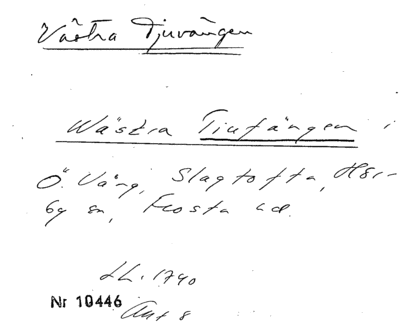 Västra Djuvängen
Wästra Tiufängen i
Ö. Väng, Slagtofta, Hör-
by sn, Frosta hd.
LL. 1790
Nr 10446 Akt 8